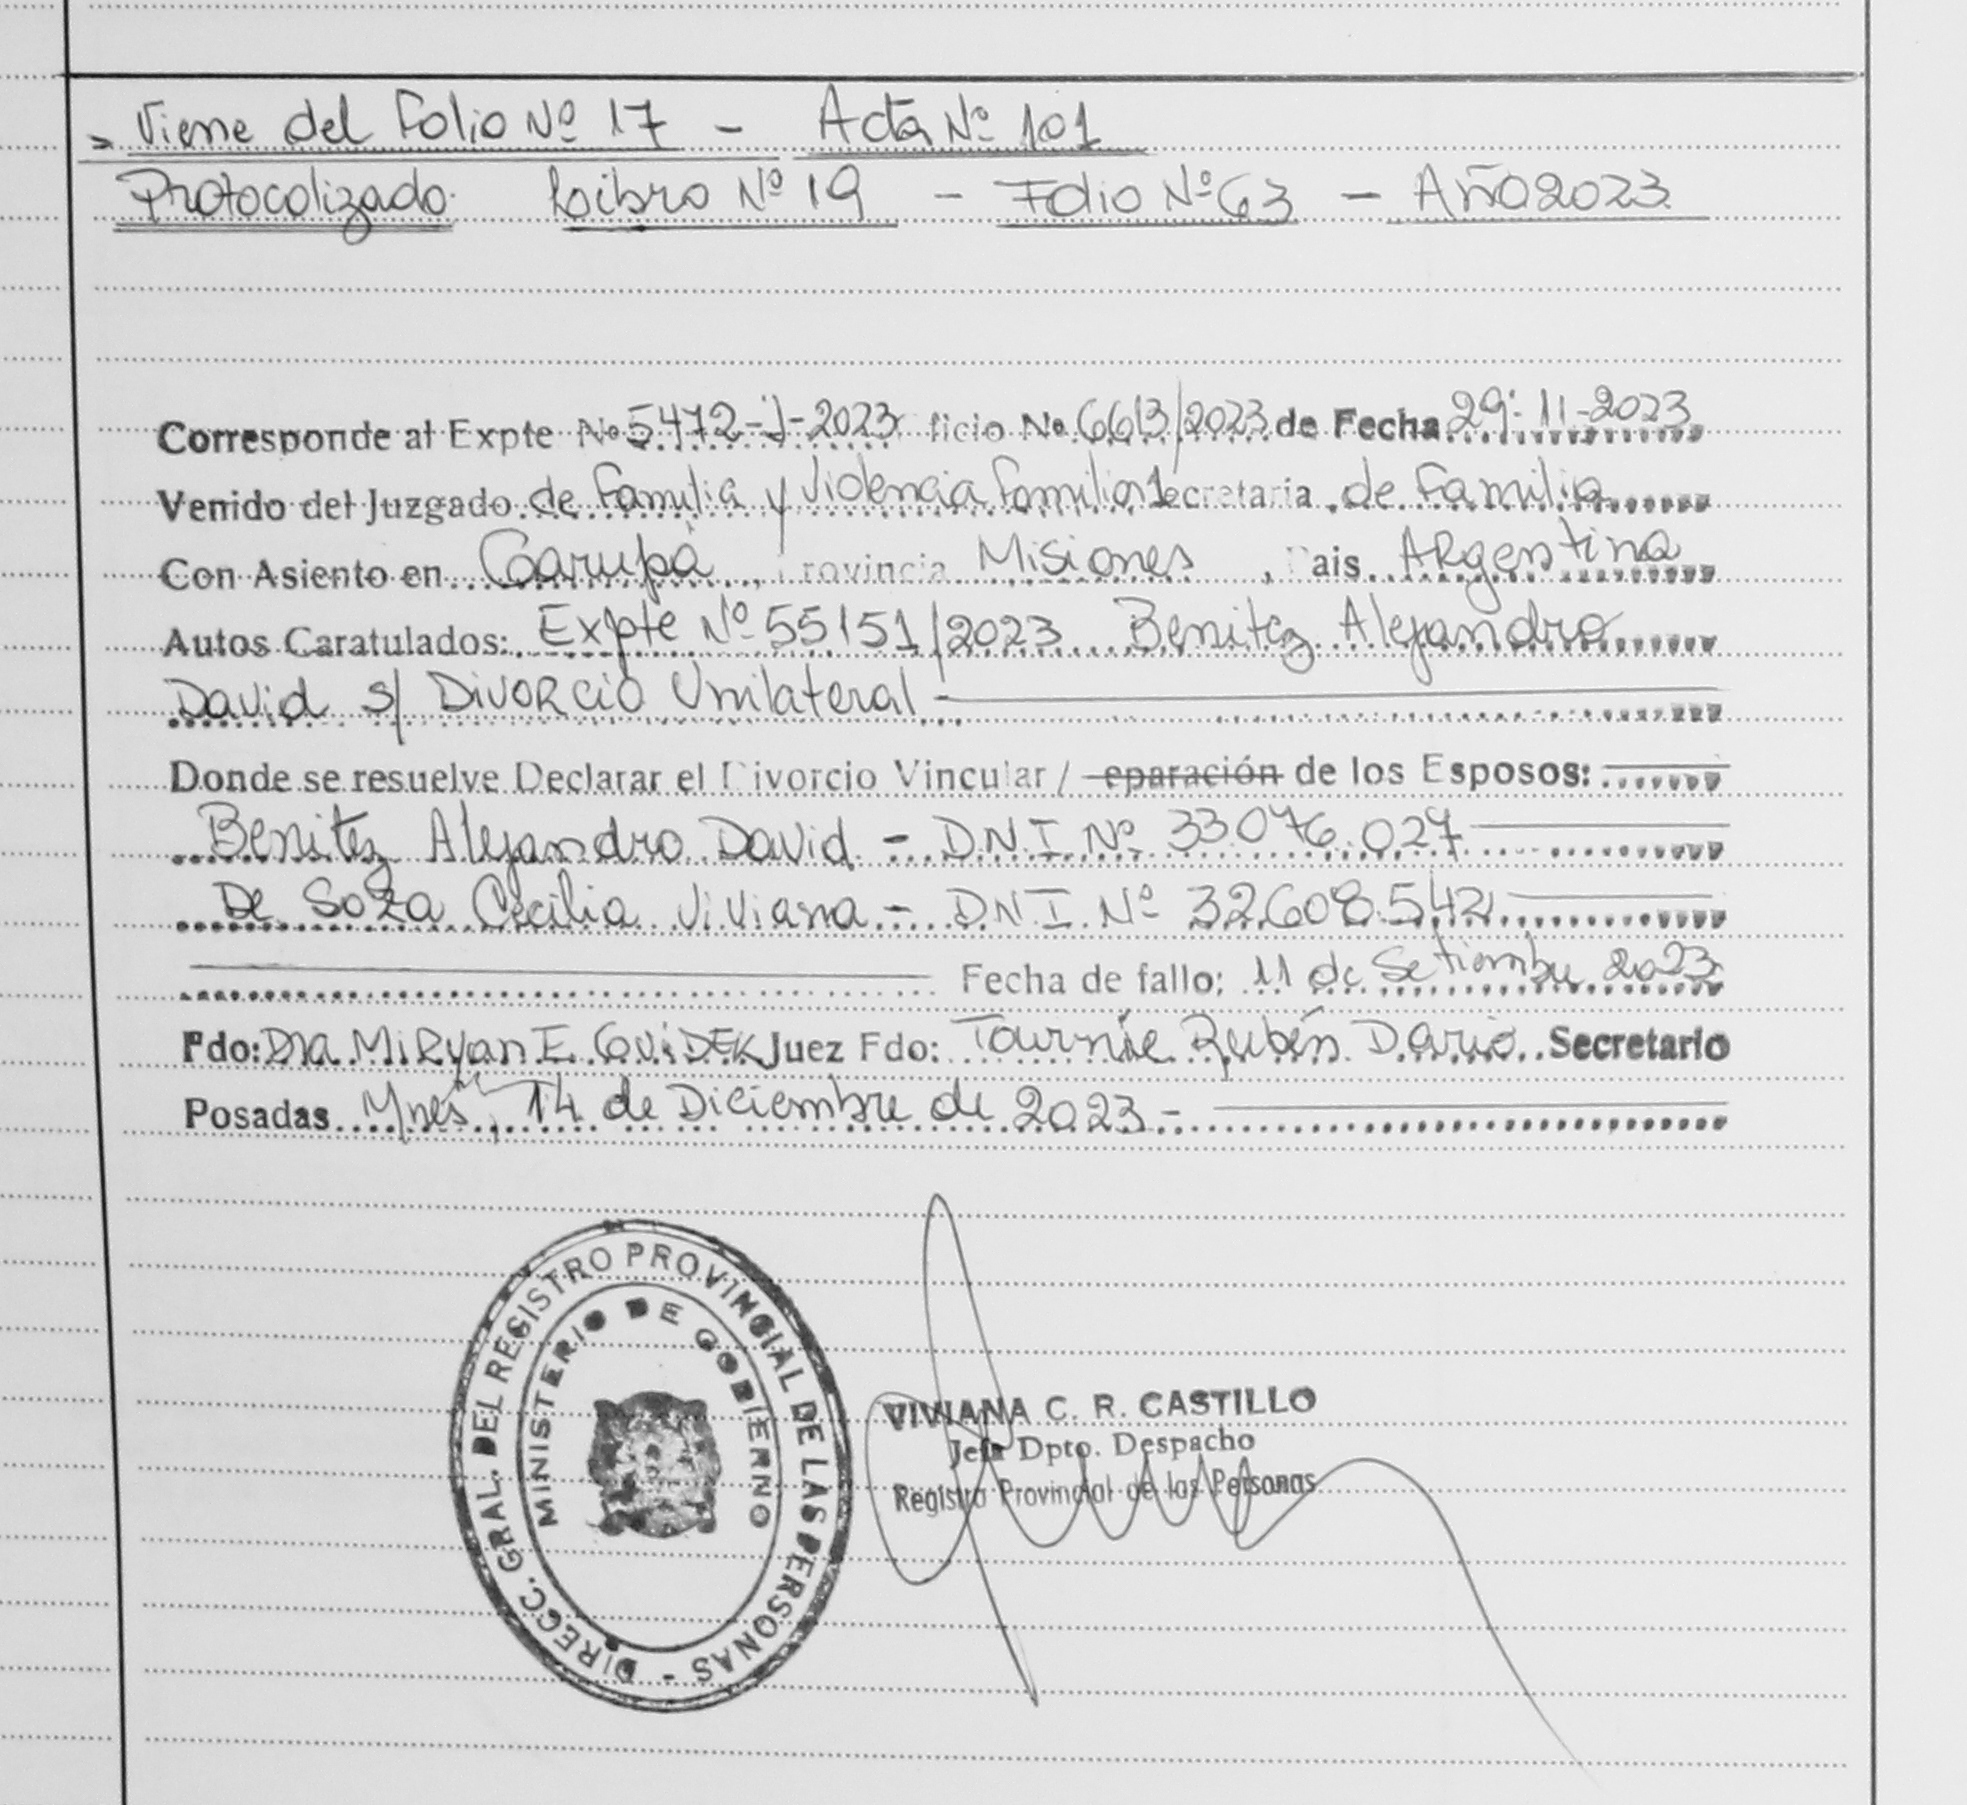 Viene del Folio Nº 17 - Acta Nº 101
Protocolizado Libro Nº 19 - Folio Nº 63 - Año 2023
Corresponde al Expte Nº 5472-J-2023 ficio Nº 6613/2023 de Fecha 29-11-2023
Venido del Juzgado de Familia y Violencia Familiar 1 ecretaria de Familia
Con Asiento en Garupá, rovincia Misiones, ais Argentina
Autos Caratulados: Expte Nº 55151/2023 Benitez Alejandro
David s/ Divorcio Unilateral -
Donde se resuelve Declarar el Divorcio Vincular / eparación de los Esposos:
Benitez Alejandro David - D.N.I. Nº 33.076.027
De Soza Cecilia Viviana - D.N.I. Nº 32.608.542
Fecha de fallo: 11 de Setiembre 2023
Fdo: Dra Miryan E. Juez Fdo: Tournie Rubén Dario Secretario
Posadas Mnes, 14 de Diciembre de 2023 -
DIRECC. GRAL. DEL REGISTRO PROVINCIAL DE LAS PERSONAS -
MINISTERIO DE GOBIERNO
VIVIANA C. R. CASTILLO
Jefa Dpto. Despacho
Registro Provincial de las Personas